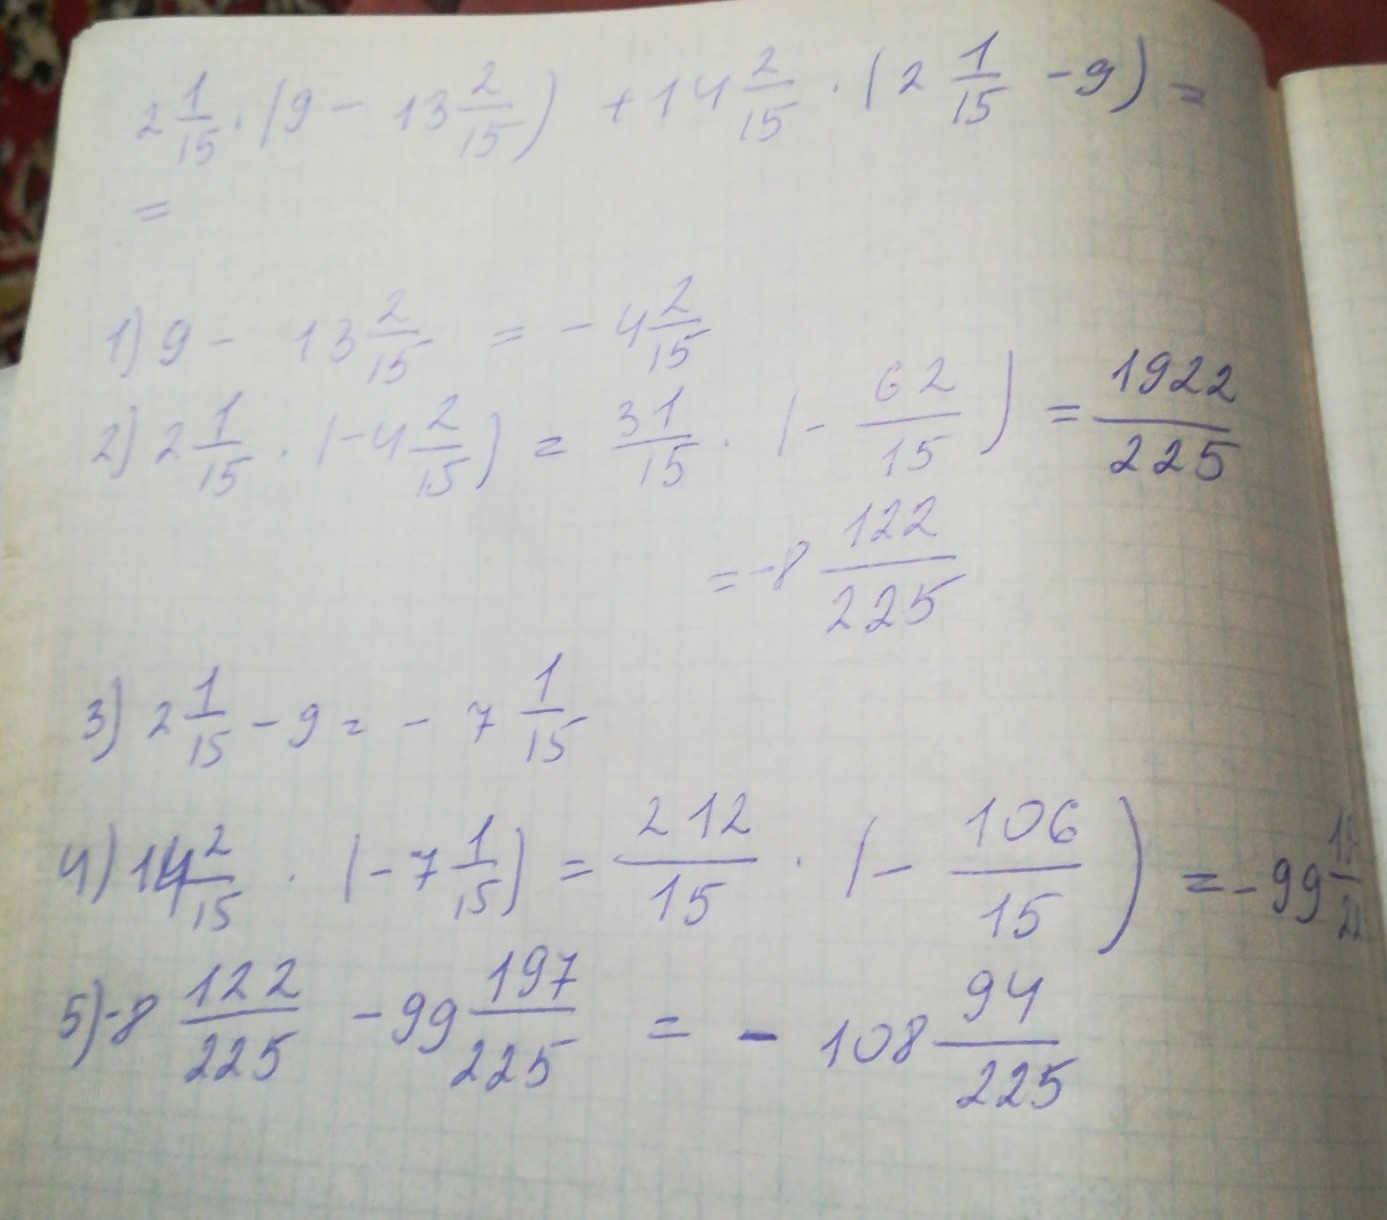 2 1/15 · (9 - 13 2/15) + 14 2/15 · (2 1/15 - 9) =
=
1) 9 - 13 2/15 = - 4 2/15
2) 2 1/15 · (-4 2/15) = 31/15 · (- 62/15) = 1922/225
= -8 122/225
3) 2 1/15 - 9 = - 7 1/15
4) 14 2/15 · (-7 1/15) = 212/15 · (- 106/15) = - 99
5) -8 122/225 - 99 197/225 = - 108 94/225